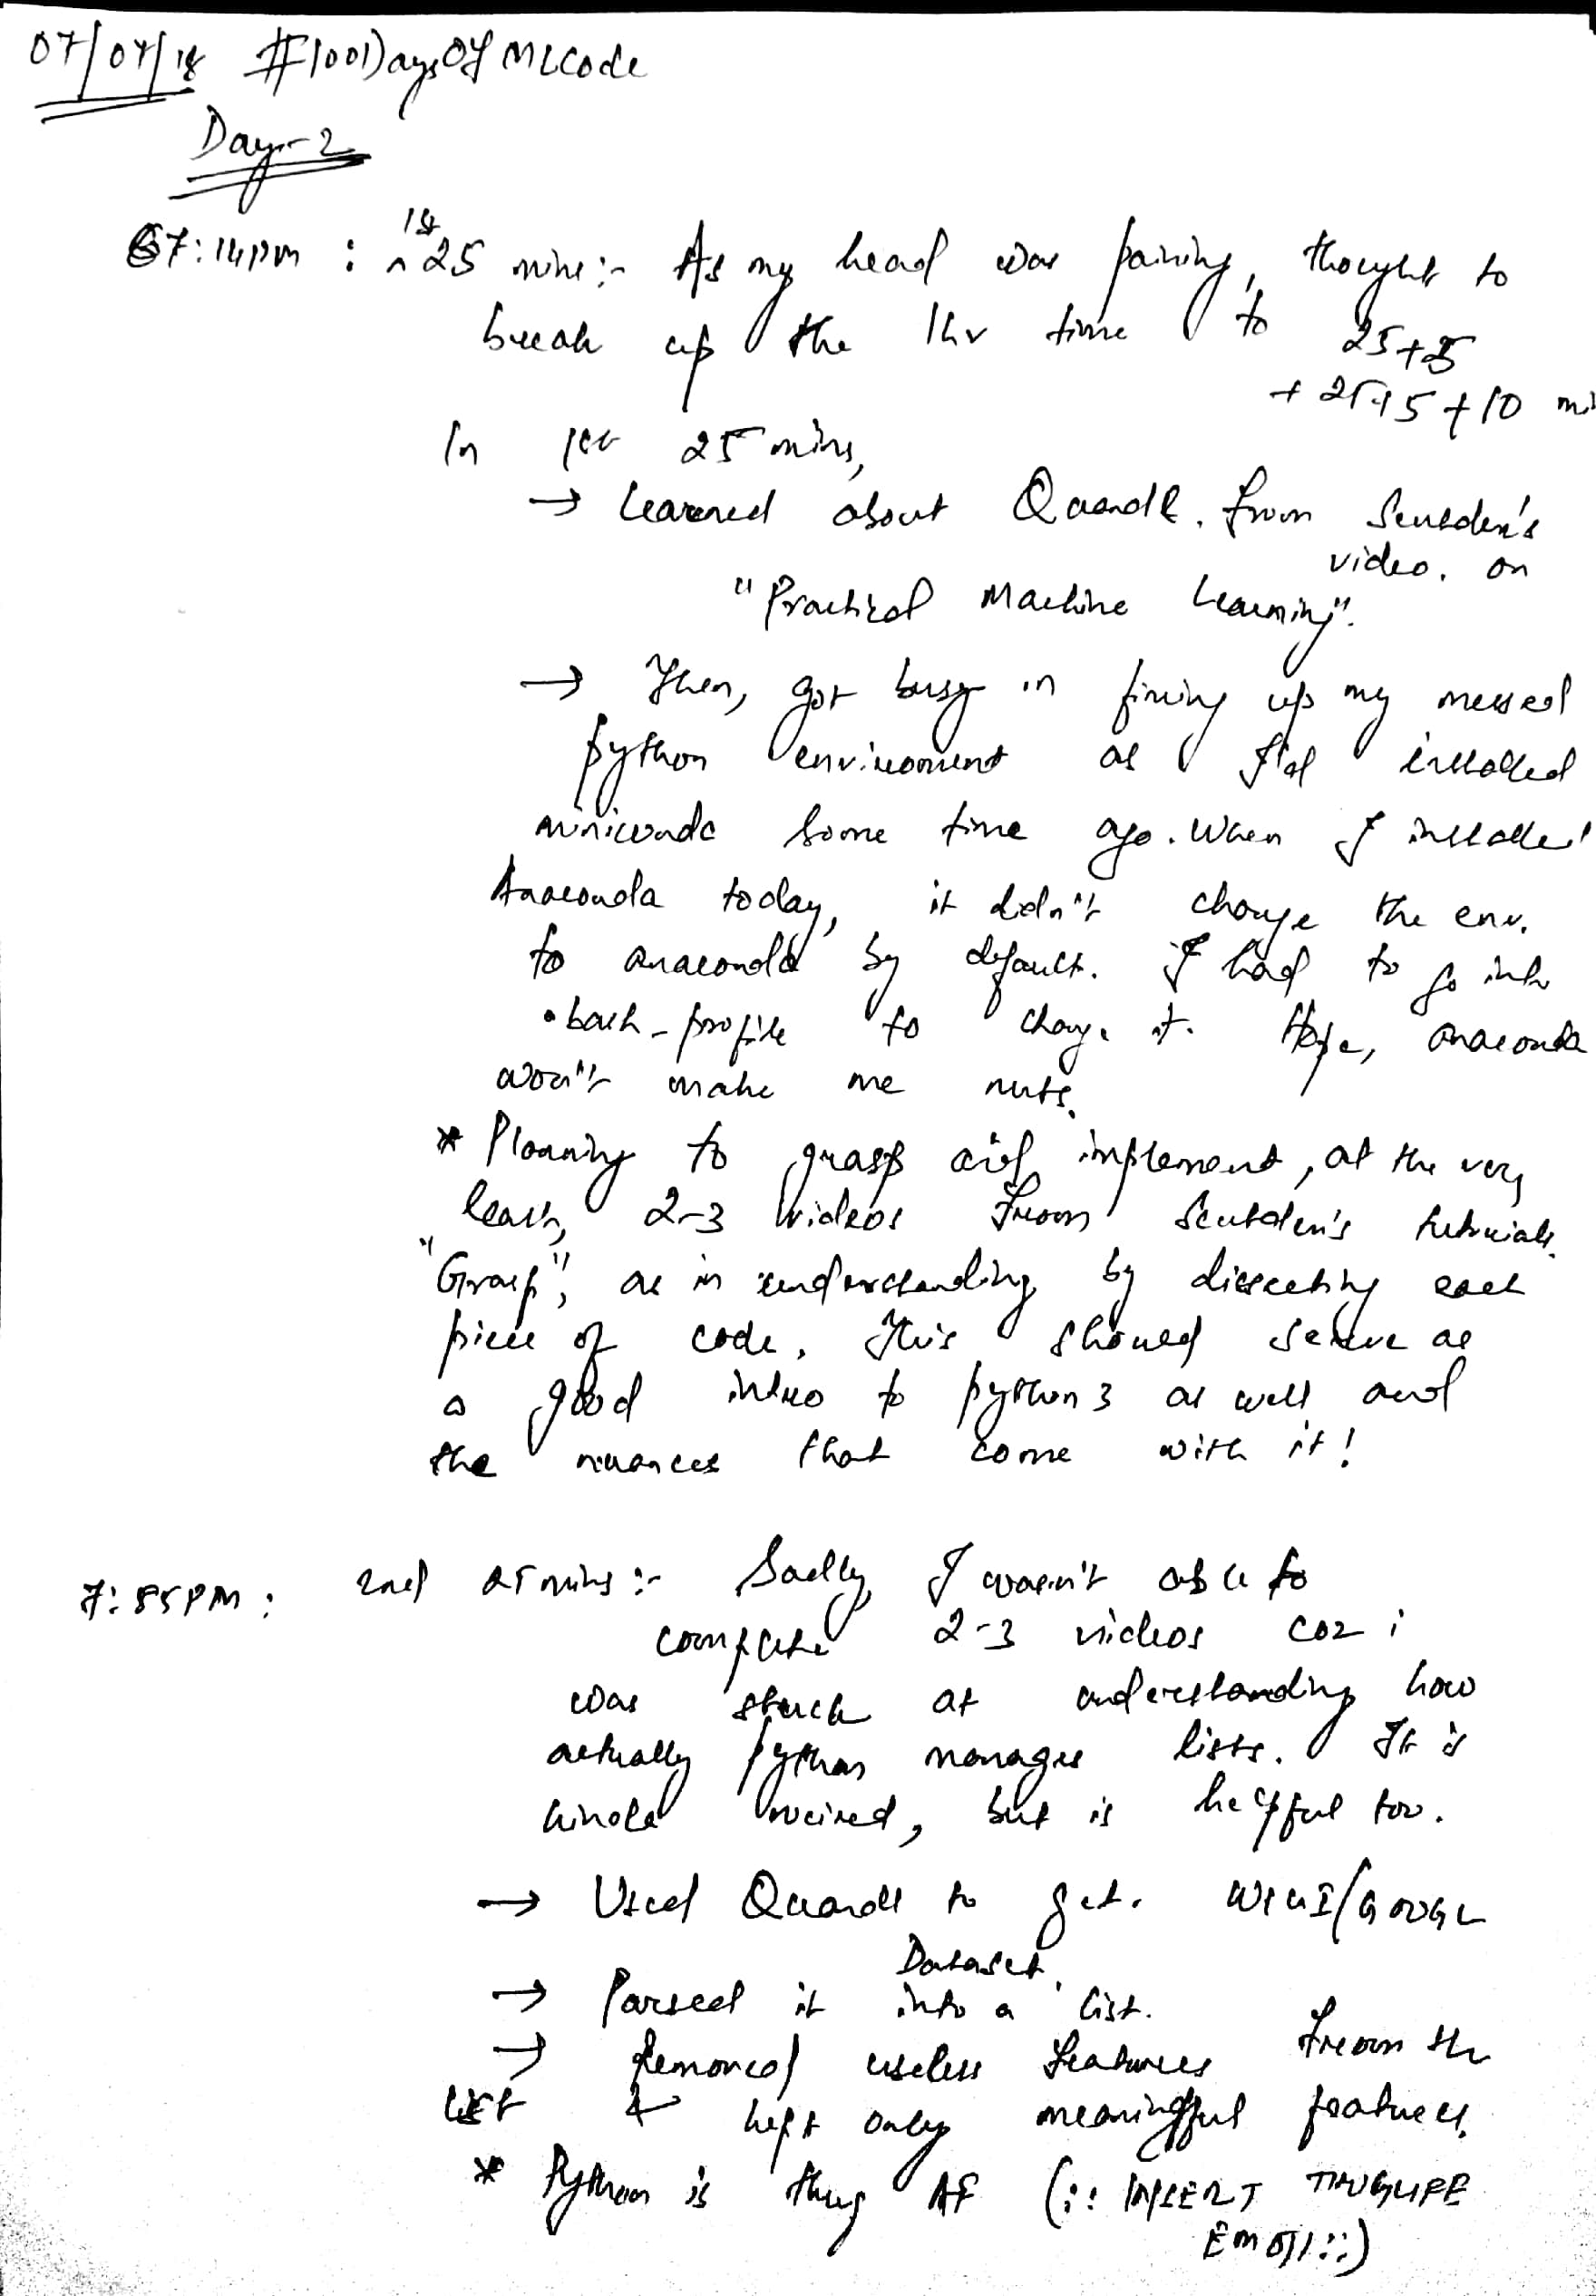 07/07/18 #100DaysOfMLCode
Day-2
07:14pm : 1st 25 mins:- As my head was paining, thought to
break up the 1hr time to 25+5
+ 25+5+10 mi
In 1st 25 mins,
→ Learned about Quandl. from Sentdex's
video. on
"Practical Machine Learning".
→ Then, got busy in fixing up my messed
python environment as I'd installed
miniconda some time ago. When I installed
Anaconda today, it didn't change the env.
to anaconda by default. I had to go into
.bash_profile to change it. Hope, anaconda
won't make me nuts.
* Planning to grasp and implement, at the very
least, 2-3 videos from Sentdex's tutorials.
"Grasp", as in understanding by dissecting each
piece of code. This should serve as
a good intro to python 3 as well and
the nuances that come with it!
7:55PM : 2nd 25 mins:- Sadly I wasn't able to
complete 2-3 videos coz i
was stuck at understanding how
actually python manages lists. It is
kinda weired, but is helpful too.
→ Used Quandl to get. WIKI/GOOGL
Dataset.
→ Parsed it into a list.
→ Removed useless features from the
list & kept only meaningful features.
* Python is thug AF (:: INSERT THUGLIFE
EMOJI ::)